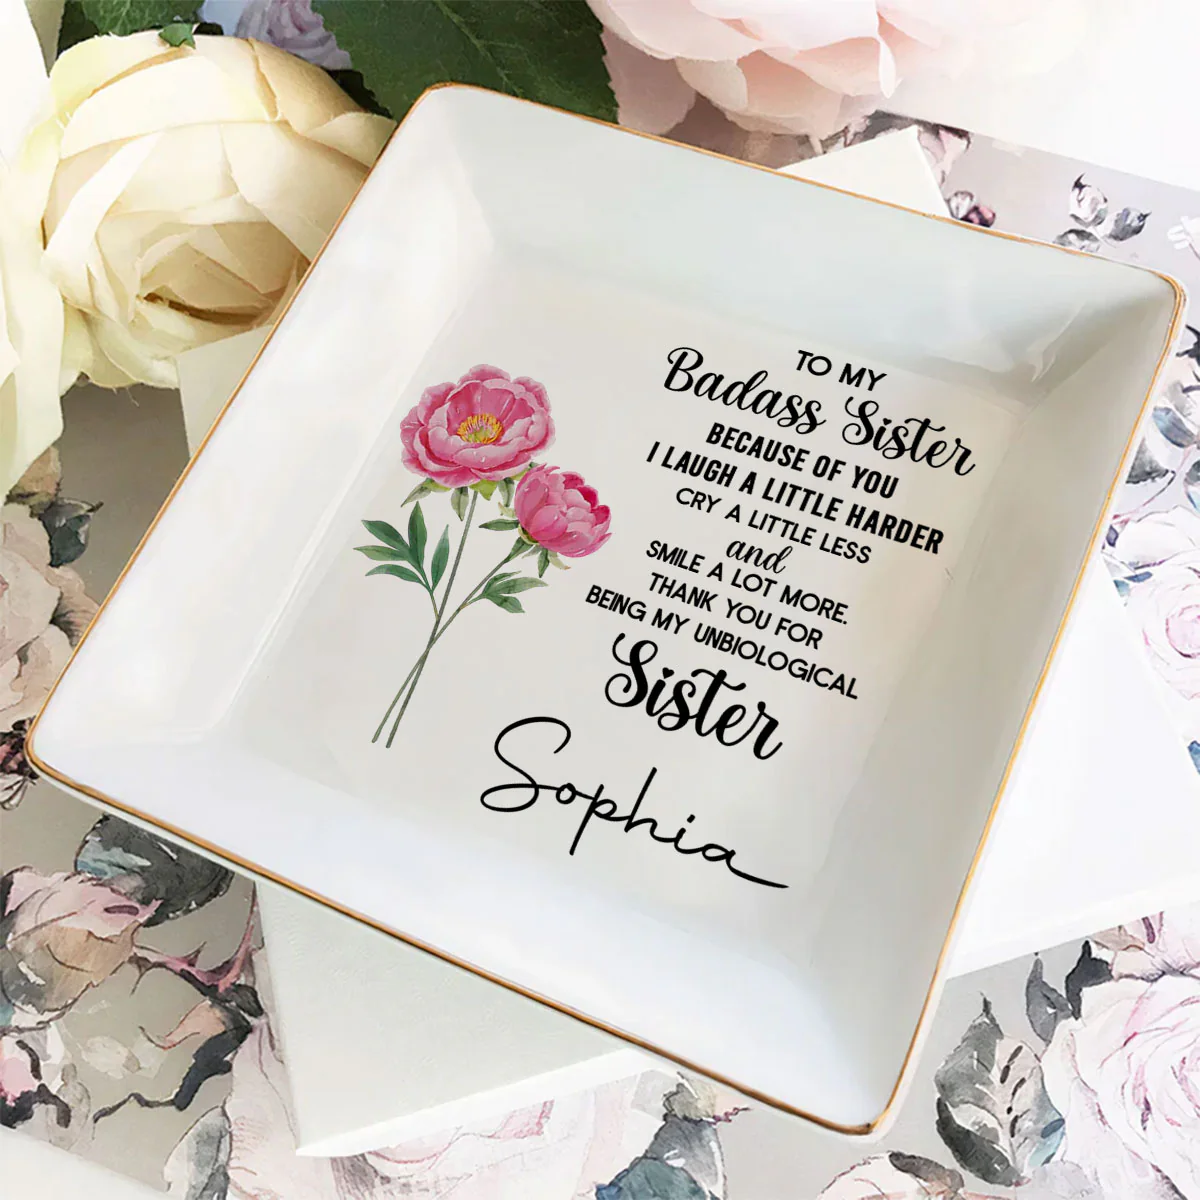 TO MY
Badass Sister
BECAUSE OF YOU
I LAUGH A LITTLE HARDER
CRY A LITTLE LESS
and
SMILE A LOT MORE.
THANK YOU FOR
BEING MY UNBIOLOGICAL
Sister
Sophia